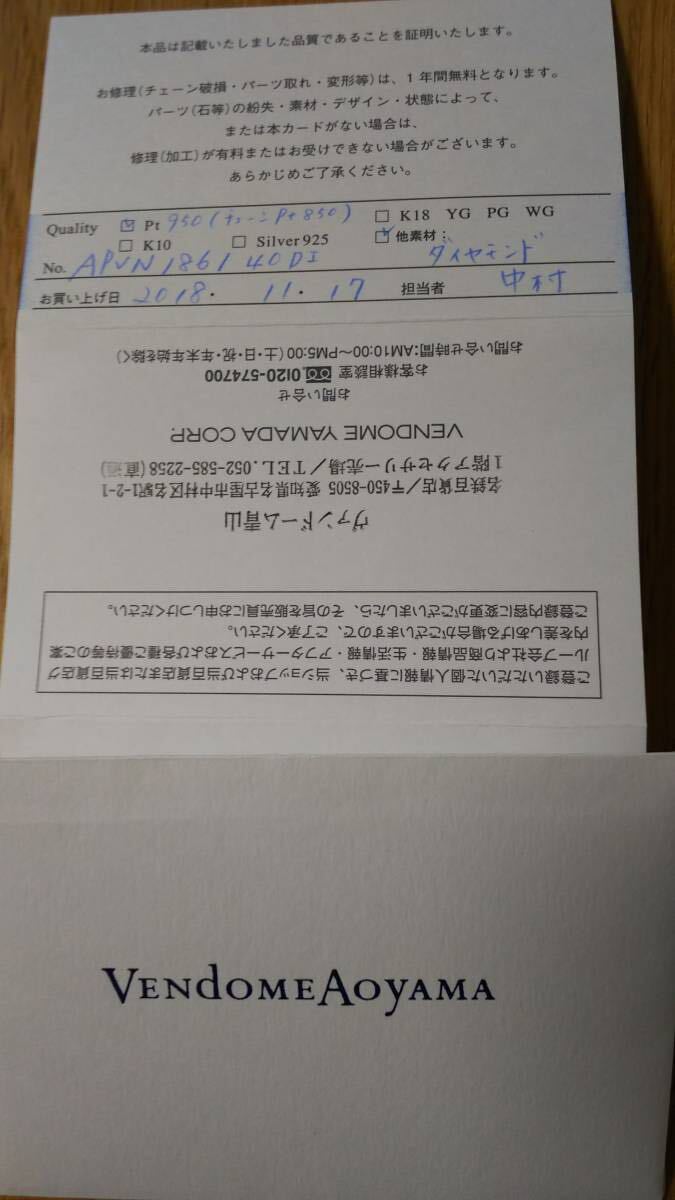 本品は記載いたしました品質であることを証明いたします。
お修理(チェーン破損・パーツ取れ・変形等)は、1年間無料となります。
パーツ(石等)の紛失・素材・デザイン・状態によって、
または本カードがない場合は、
修理(加工)が有料またはお受けできない場合がございます。
あらかじめご了承ください。
Quality ☑ Pt 950(チェーンPt850) ☐ K18 YG PG WG
☐ K10 ☐ Silver 925 ☑ 他素材:
No. APVN1861 40DI ダイヤモンド
お買い上げ日 2018. 11. 17 担当者 中村
ご登録いただいた個人情報に基づき、当ショップおよび当百貨店または当百貨店グ
ループ会社より商品情報・生活情報・アフターサービスおよび各種ご優待等のご案
内を差しあげる場合がございますので、ご了承ください。
ご登録内容に変更がございましたら、その旨を販売員にお申しつけください。
ヴァンドーム青山
名鉄百貨店/〒450-8505 愛知県名古屋市中村区名駅1-2-1
1階アクセサリー売場/TEL.052-585-2258(直通)
VENDOME YAMADA CORP.
お問い合せ
お客様相談室 0120-574700
お問い合せ時間:AM10:00~PM5:00(土・日・祝・年末年始を除く)
VENDOMEAOYAMA